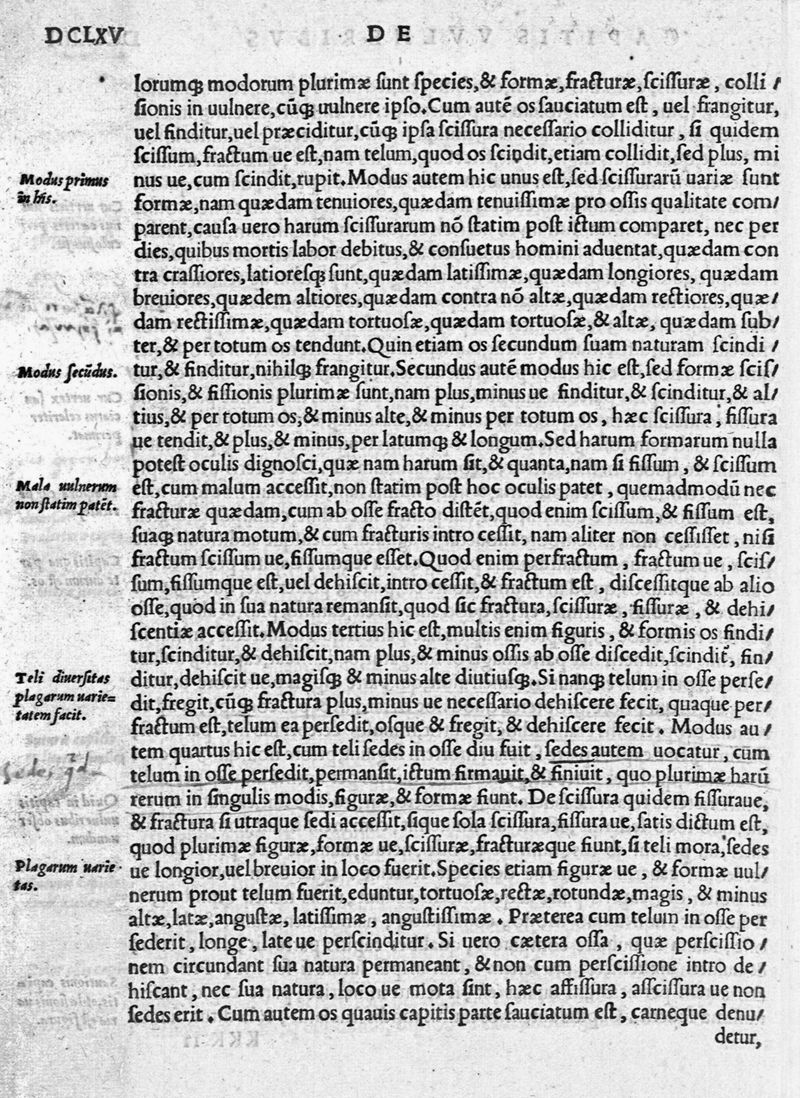 DCLXV DE
lorumq́; modorum plurimæ ſunt ſpecies, & formæ, fracturæ, ſciſſuræ, colli⸗
ſionis in uulnere, cũq́; uulnere ipſo. Cum autẽ os ſauciatum eſt, uel frangitur,
uel finditur, uel præciditur, cũq́; ipſa ſciſſura neceſſario colliditur, ſi quidem
ſciſſum, fractum ue eſt, nam telum, quod os ſcindit, etiam collidit, ſed plus, mi
Modus primus
in his.
nus ue, cum ſcindit, rupit. Modus autem hic unus eſt, ſed ſciſſurarũ uariæ ſunt
formæ, nam quædam tenuiores, quædam tenuiſſimæ pro oſſis qualitate com⸗
parent, cauſa uero harum ſciſſurarum nõ ſtatim poſt ictum comparet, nec per
dies, quibus mortis labor debitus, & conſuetus homini aduentat, quædam con
tra craſſiores, latioreſq́; ſunt, quædam latiſſimæ, quædam longiores, quædam
breuiores, quædem altiores, quædam contra nõ altæ, quædam rectiores, quæ⸗
dam rectiſſimæ, quædam tortuoſæ, quædam tortuoſæ, & altæ, quædam ſub⸗
ter, & per totum os tendunt. Quin etiam os ſecundum ſuam naturam ſcindi⸗
Modus ſecũdus.
tur, & finditur, nihilq́; frangitur. Secundus autẽ modus hic eſt, ſed formæ ſciſ⸗
ſionis, & fiſſionis plurimæ ſunt, nam plus, minus ue finditur, & ſcinditur, & al⸗
tius, & per totum os, & minus alte, & minus per totum os, hæc ſciſſura, fiſſura
ue tendit, & plus, & minus, per latumq́; & longum. Sed harum formarum nulla
poteſt oculis dignoſci, quæ nam harum ſit, & quanta, nam ſi fiſſum, & ſciſſum
Mala uulnerum
non ſtatim patẽt.
eſt, cum malum acceſſit, non ſtatim poſt hoc oculis patet, quemadmodũ nec
fracturæ quædam, cum ab oſſe fracto diſtẽt, quod enim ſciſſum, & fiſſum eſt,
ſuaq́; natura motum, & cum fracturis intro ceſſit, nam aliter non ceſſiſſet, niſi
fractum ſciſſum ue, fiſſumque eſſet. Quod enim perfractum, fractum ue, ſciſ⸗
ſum, fiſſumque eſt, uel dehiſcit, intro ceſſit, & fractum eſt, diſceſſitque ab alio
oſſe, quod in ſua natura remanſit, quod ſic fractura, ſciſſuræ, fiſſuræ, & dehi⸗
ſcentiæ acceſſit. Modus tertius hic eſt, multis enim figuris, & formis os findi⸗
tur, ſcinditur, & dehiſcit, nam plus, & minus oſſis ab oſſe diſcedit, ſcindit, fin⸗
Teli diuerſitas
plagarum uarie=
tatem facit.
ditur, dehiſcit ue, magiſq́; & minus alte diutiuſq́;. Si nanq́; telum in oſſe perſe⸗
dit, fregit, cũq́; fractura plus, minus ue neceſſario dehiſcere fecit, quaque per⸗
fractum eſt, telum ea perſedit, oſque & fregit, & dehiſcere fecit. Modus au⸗
tem quartus hic eſt, cum teli ſedes in oſſe diu fuit, ſedes autem uocatur, cum
telum in oſſe perſedit, permanſit, ictum firmauit, & finiuit, quo plurimæ harũ
rerum in ſingulis modis, figuræ, & formæ fiunt. De ſciſſura quidem fiſſuraue,
& fractura ſi utraque ſedi acceſſit, ſique ſola ſciſſura, fiſſura ue, ſatis dictum eſt,
quod plurimæ figuræ, formæ ue, ſciſſuræ, fracturæque fiunt, ſi teli mora, ſedes
Plagarum uarie
tas.
ue longior, uel breuior in loco fuerit. Species etiam figuræ ue, & formæ uul⸗
nerum prout telum fuerit, eduntur, tortuoſæ, rectæ, rotundæ, magis, & minus
altæ, latæ, anguſtæ, latiſſimæ, anguſtiſſimæ. Præterea cum telum in oſſe per
ſederit, longe, late ue perſcinditur. Si uero cætera oſſa, quæ perſciſſio⸗
nem circundant ſua natura permaneant, & non cum perſciſſione intro de⸗
hiſcant, nec ſua natura, loco ue mota ſint, hæc affiſſura, aſſciſſura ue non
ſedes erit. Cum autem os quauis capitis parte ſauciatum eſt, carneque denu⸗
detur,